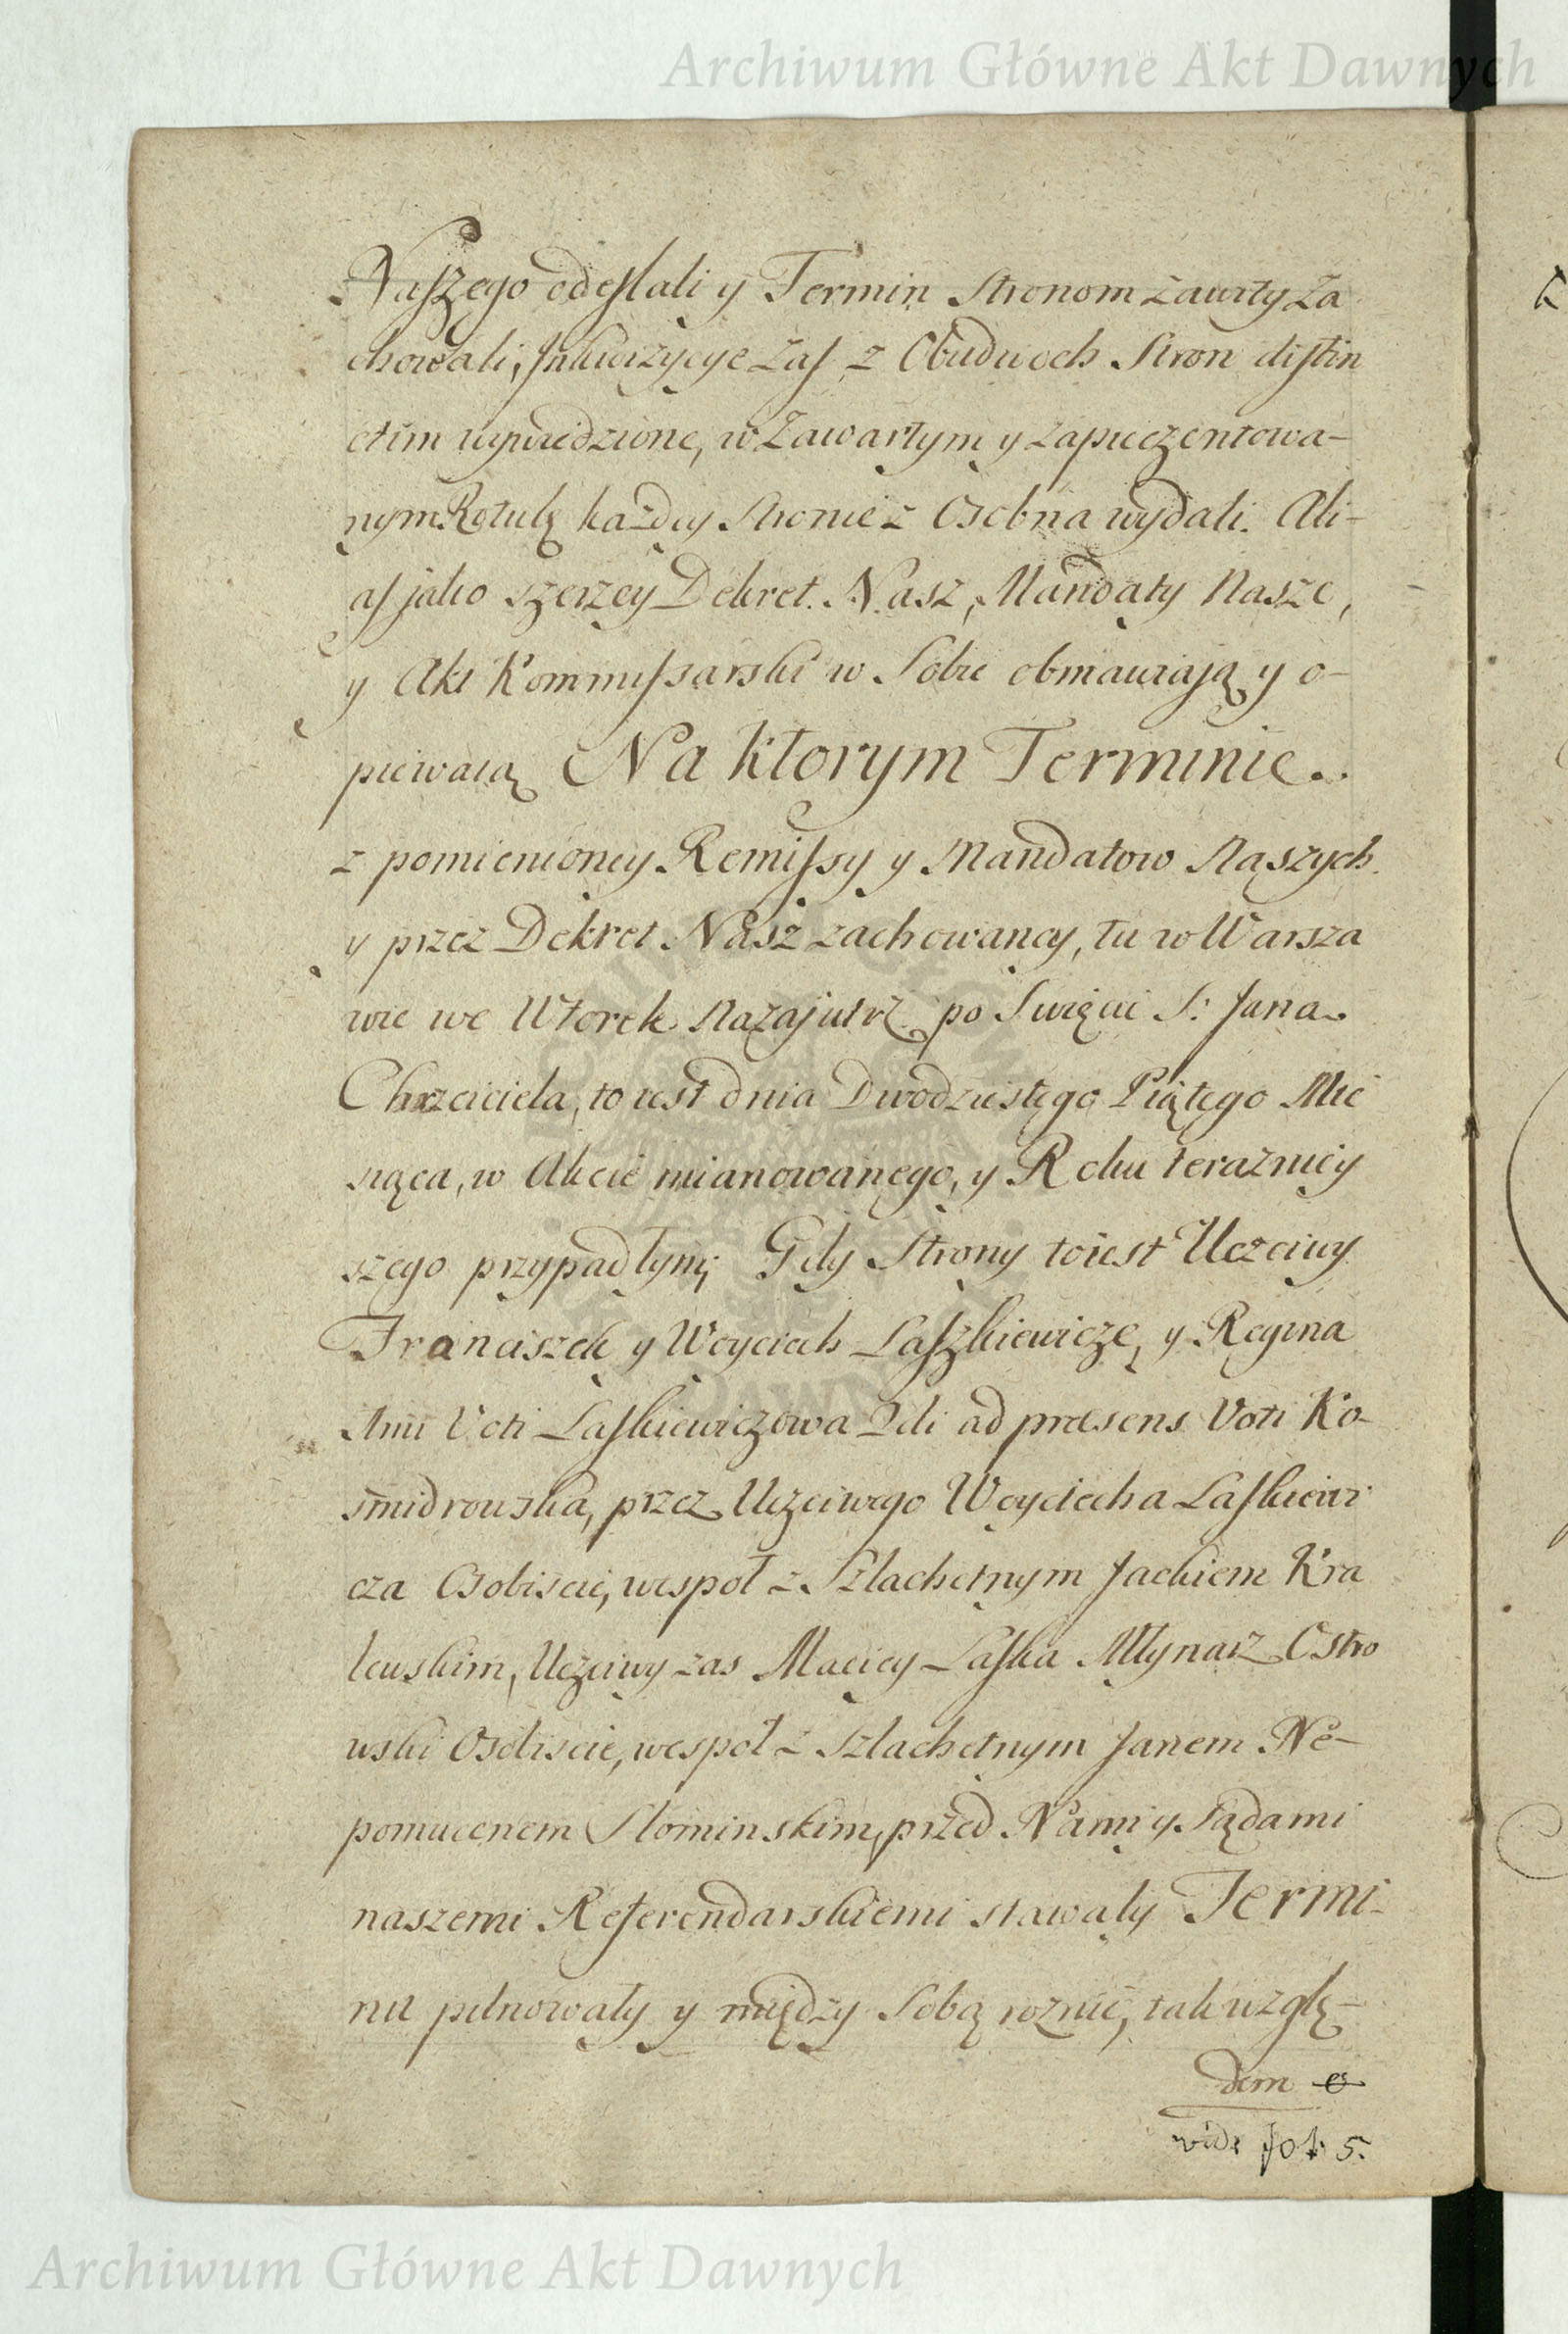 Archiwum Główne Akt Dawnych
Naszego odesłali y Termin Stronom zawity za
chowali, Inkwizycye zas z Obudwoch Stron distin
ctim wywiedzione, w Zawartym y zapieczentowa-
nym Rotulę każdey Stronie z Osobna wydali. Ali-
as jako szerzey Dekret Nasz, Mandaty Nasze,
y Akt Kommissarski w Sobie obmawiają y o-
piewaią Na ktorym Terminie
z pomienioney Remissy y Mandatow Naszych
y przez Dekret Nasz zachowaney, tu w Warsza
wie we Wtorek Nazajutrz po Swięcie S: Jana
Chrzciciela, to iest dnia Dwodziestego Piątego Mie
siąca, w Akcie mianowanego, y Roku teraźniey
szego przypadłym; Gdy Strony toiest Uczciwy
Franciszek y Woyciech Laszkiewicze, y Regina
1mi Voti Laskiewiczowa 2di ad præsens Voti Ko-
smidrowska, przez Uczciwego Woyciecha Laskiewi
cza Osobiscie, wespoł z Szlachetnym Jackiem Kra
lewskim, Uczciwy zas Maciey Laska Młynarz Ostro
wski Osobiscie, wespoł z Szlachetnym Janem Ne-
pomucenem Słominskim, przed Nami y Sądami
naszemi Referendarskiemi stawały Termi-
nu pilnowały y między Sobą roznie, tak wzglę-
dem
vide fol: 5.
Archiwum Główne Akt Dawnych